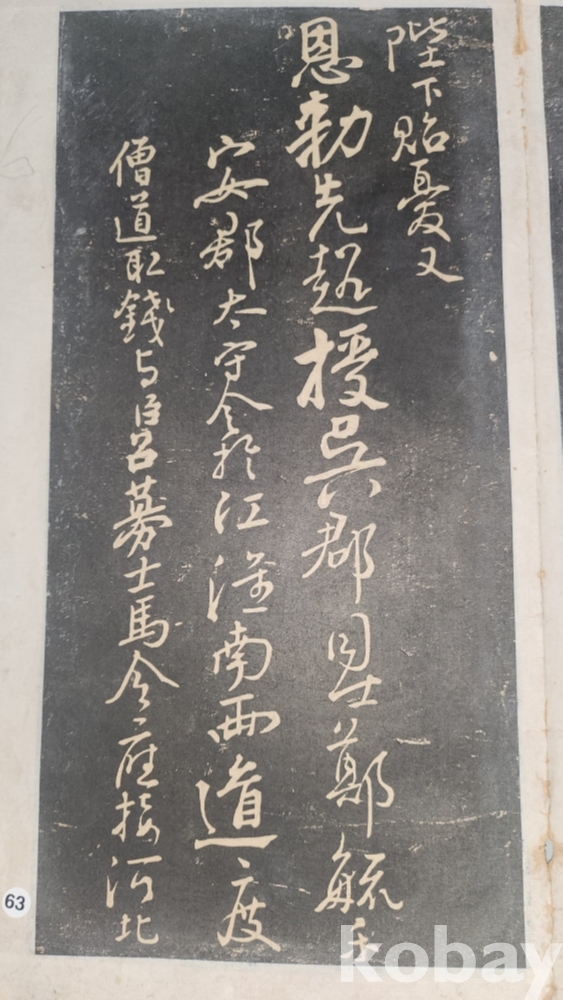 陛下貽憂又
恩勅先超授吳郡司士鄭毓壬
安郡太守令於江淮南兩道〻度
僧道取錢与臣召募士馬令〻應接河北
63
kobay